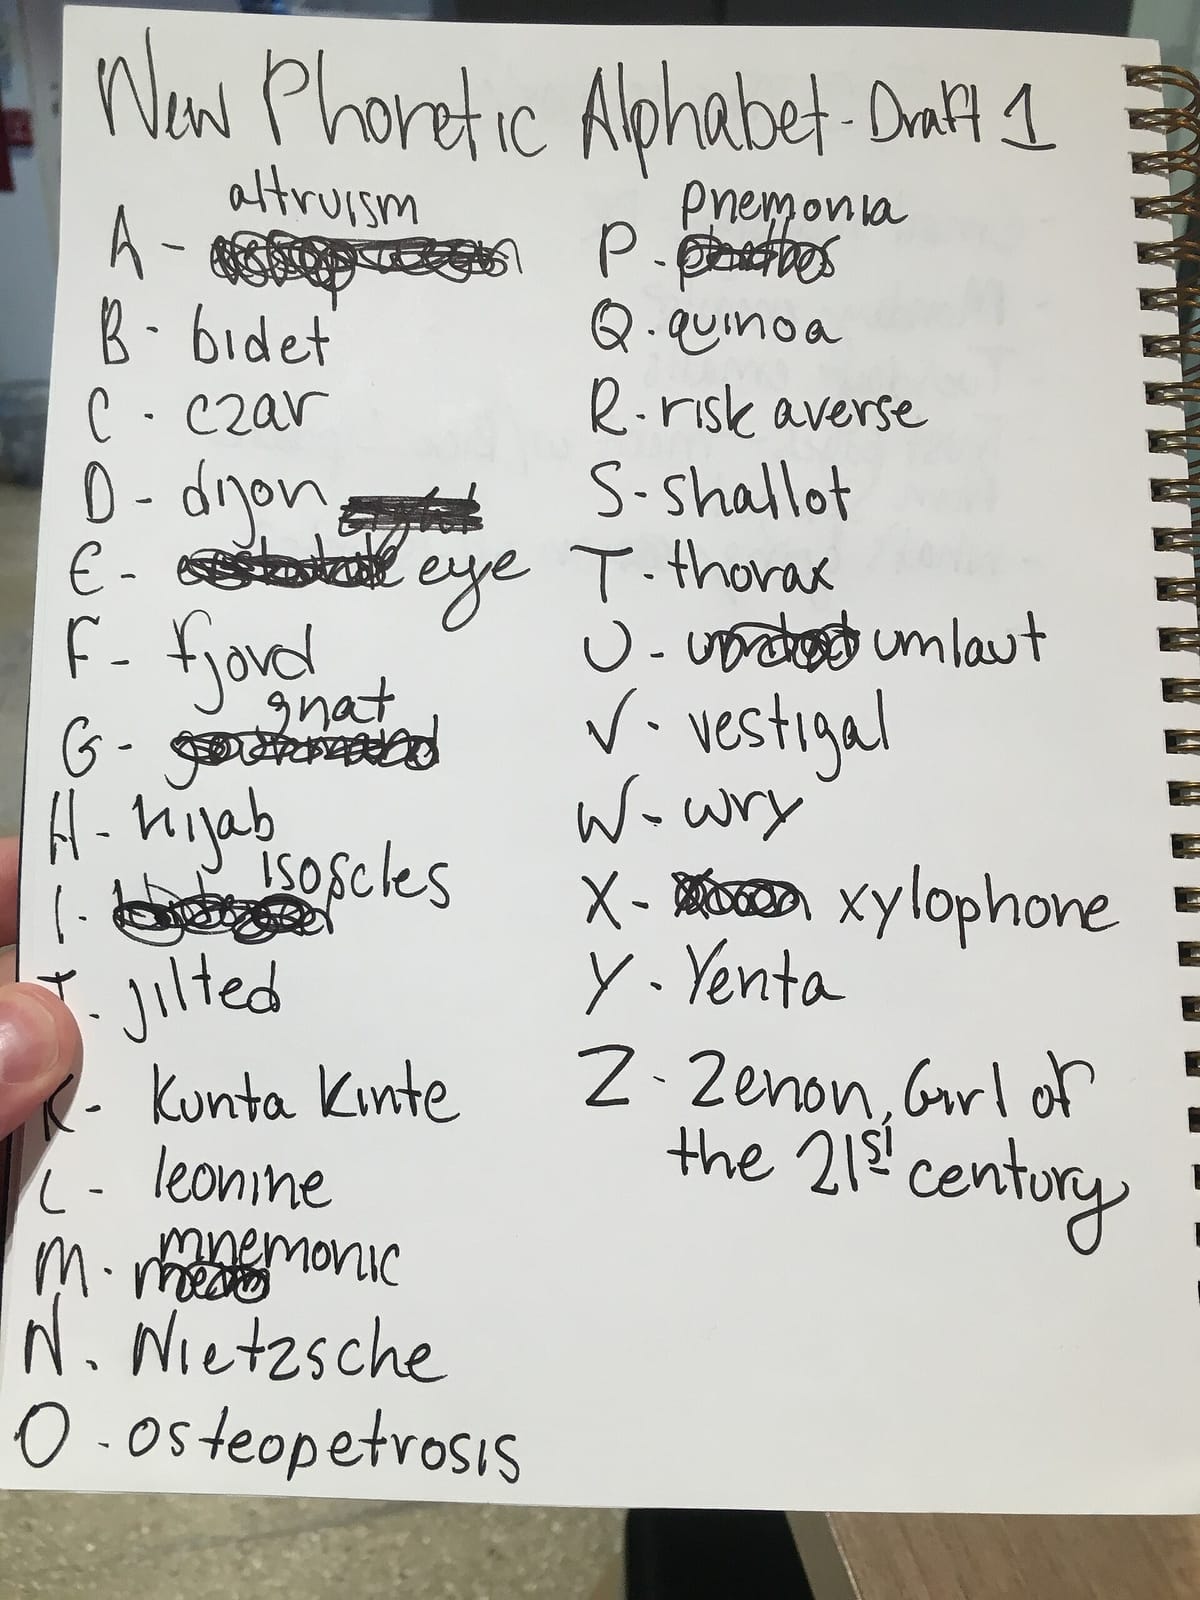 New Phonetic Alphabet - Draft 1
altruism
A -
B - bidet
C - czar
D - dijon
E - eye
F - fjord
gnat
G -
H - hijab
isoscles
I -
J - jilted
K - Kunta Kinte
L - leonine
mnemonic
M -
N - Nietzsche
O - osteopetrosis
pnemonia
P -
Q - quinoa
R - risk averse
S - shallot
T - thorax
U - umlaut
V - vestigal
W - wry
X - xylophone
Y - Yenta
Z - Zenon, Girl of
the 21st century